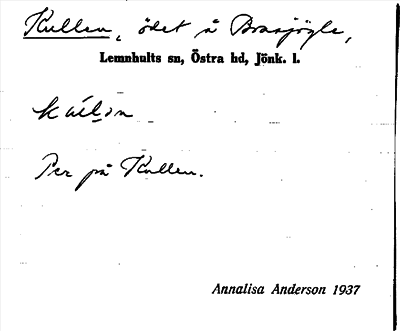 Kullen, ödet å Brasjögle,
Lemnhults sn, Östra hd, Jönk. l.
Per på Kullen.
Annalisa Anderson 1937